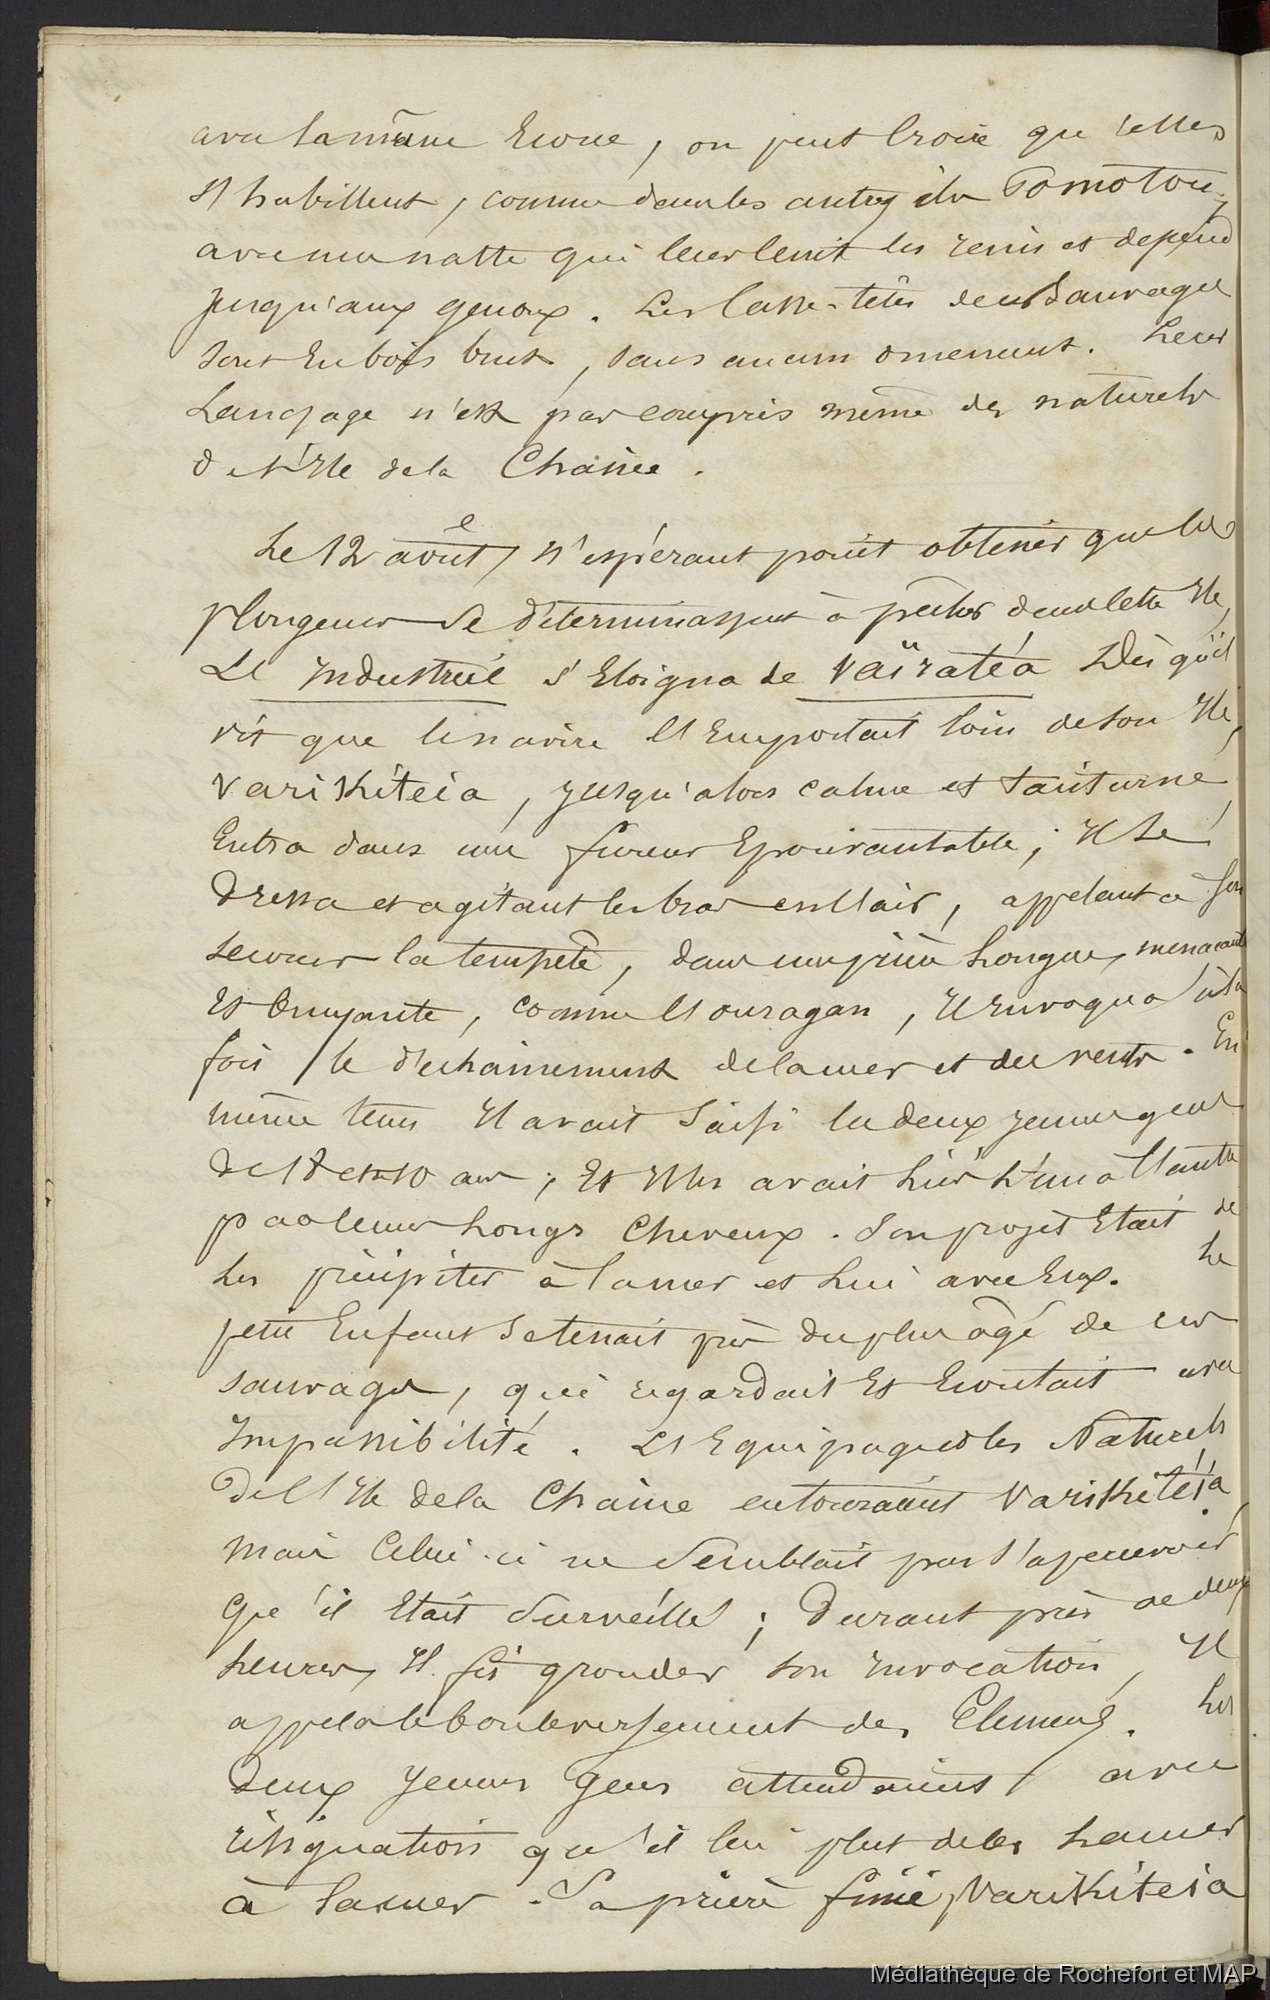 avec la même Ecorce, on peut Croire qu'elles
s'habillent, comme dans les autres iles Pomotou,
avec une natte qui leur ceint les reins et depend
jusqu'aux genoux. Les Casse-têtes de ces Sauvages
sont En bois brut, sans aucun ornement. Leur
Langage n'est pas compris même des naturels
de l'Ile de la Chaîne.
Le 12 août, n'espérant point obtenir que les
plongeurs se déterminassent à pêcher dans cette Ile,
L'Industriel s'Eloigna de Vaïratéa Dès qu'il
vit que le navire l'Emportait loin de son Ile,
Varikitéia, jusqu'alors calme et taciturne,
Entra dans une fureur Epouvantable; Il se
Dressa et agitant les bras en l'air, appelant à son
secours la tempête, dans une prière Longue, menacante
Et bruyante, comme l'ouragan, Il Envoqua à la
fois le déchainement de la mer et des vents. En
même tems Il avait Saisi les deux jeunes gens
De 18 et 20 ans; Et Il les avait Liés L'un à l'autre
par leurs Longs Cheveux. Son projet Etait de
Les précipiter à la mer et Lui avec Eux. Le
petit Enfant se tenait près du plus âgé de ces
sauvages, qui regardait Et Ecoutait avec
Impassibilité. L'Equipage et les Naturels
De l'Ile de la Chaîne entouraient Varikitéia,
mais Celui-ci ne Semblait pas s'apercevoir
Que'il Etait Surveillé; Durant près de deux
heures, Il fit gronder son Invocation, Il
appela le bouleversement des Elemens. Les
Deux Jeunes Gens attendaient avec
résignation qu'il lui plut de les Lancer
à la mer. Sa prière finie, Varikitéia
Médiathèque de Rochefort et MAP